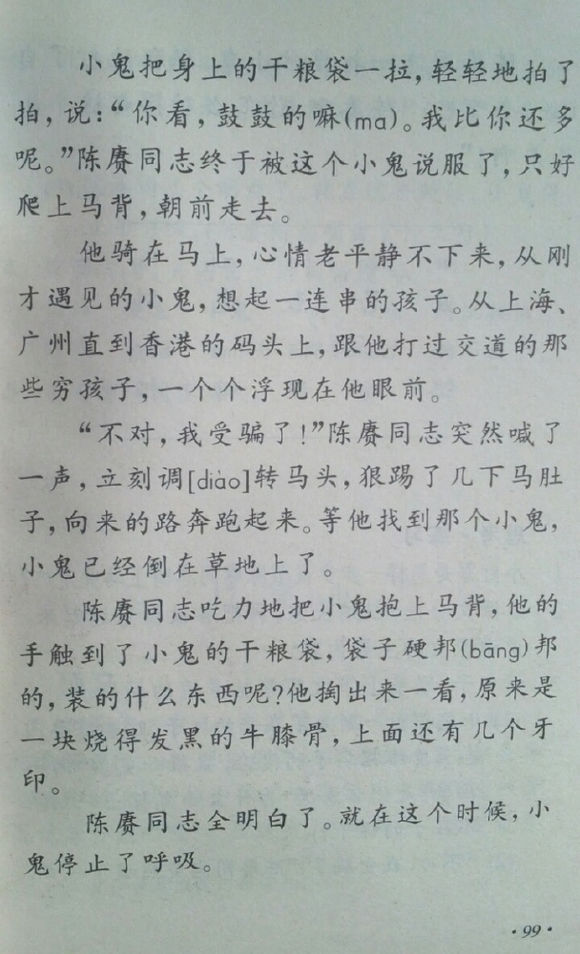 小鬼把身上的干粮袋一拉，轻轻地拍了
拍，说：“你看，鼓鼓的嘛(ma)。我比你还多
呢。”陈赓同志终于被这个小鬼说服了，只好
爬上马背，朝前走去。
他骑在马上，心情老平静不下来，从刚
才遇见的小鬼，想起一连串的孩子。从上海、
广州直到香港的码头上，跟他打过交道的那
些穷孩子，一个个浮现在他眼前。
“不对，我受骗了！”陈赓同志突然喊了
一声，立刻调[diào]转马头，狠踢了几下马肚
子，向来的路奔跑起来。等他找到那个小鬼，
小鬼已经倒在草地上了。
陈赓同志吃力地把小鬼抱上马背，他的
手触到了小鬼的干粮袋，袋子硬邦(bāng)邦
的，装的什么东西呢？他掏出来一看，原来是
一块烧得发黑的牛膝骨，上面还有几个牙
印。
陈赓同志全明白了。就在这个时候，小
鬼停止了呼吸。
·99·